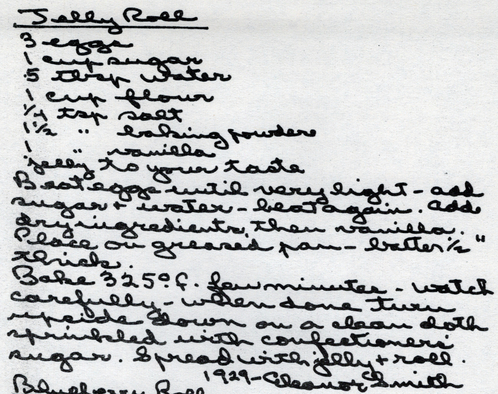 Jelly Roll
3 eggs
1 cup sugar
5 tbsp water
1 cup flour
1/4 tsp salt
1 1/2 " baking powder
1 " vanilla
jelly to your taste
Beat eggs until very light - add
sugar + water - beat again. add
dry ingredients, then vanilla.
Place on greased pan - batter 1/2"
thick.
Bake 325° F. few minutes - watch
carefully - when done turn
upside down on a clean cloth
sprinkled with confectioners
sugar. Spread with jelly + roll.
1929 - Eleanor Smith
Blueberry Roll